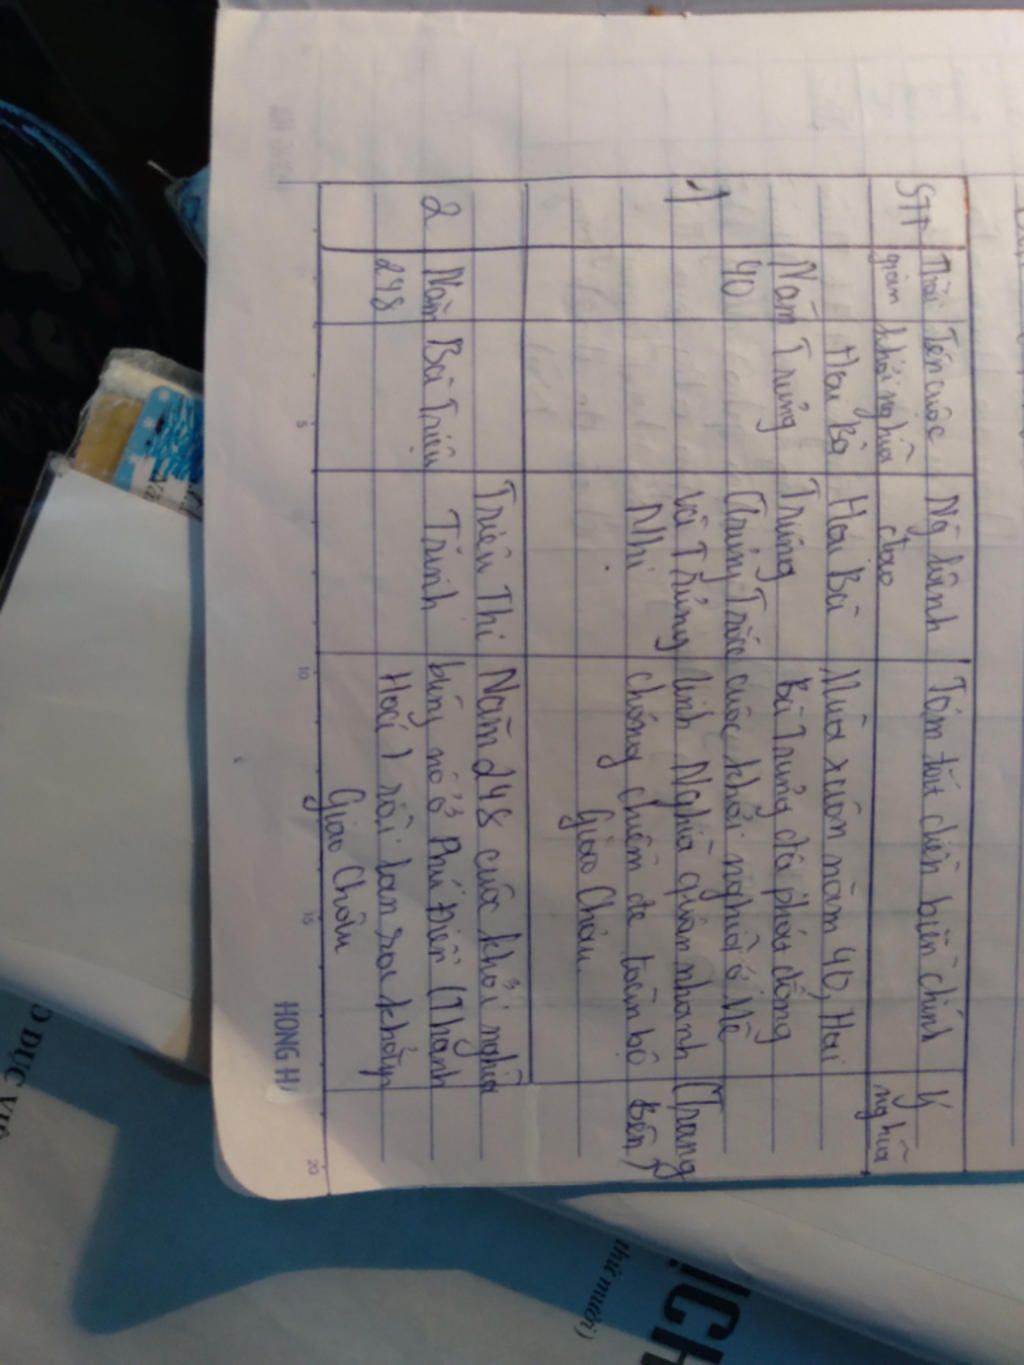 STT Thời Tên cuộc Người lãnh Tóm tắt diễn biến chính Ý
gian khởi nghĩa đạo nghĩa
Hai Bà Hai Bà Mùa xuân năm 40, Hai
Năm Trưng Trưng Bà Trưng đã phát động
40 (Trưng Trắc cuộc khởi nghĩa ở Mê
1 và Trưng Linh Nghĩa quân nhanh (Trang
Nhị chóng chiếm đc toàn bộ Bên)
Giao Châu.
Triệu Thị Năm 248 cuộc khởi nghĩa
2 Năm Bà Triệu Trinh bùng nổ ở Phú Điền (Thanh
248 Hoá) rồi lan ra khắp
Giao Châu
5
10
15
20
HONG H
O DỤC VIỆ
ỊCH
thứ mười)